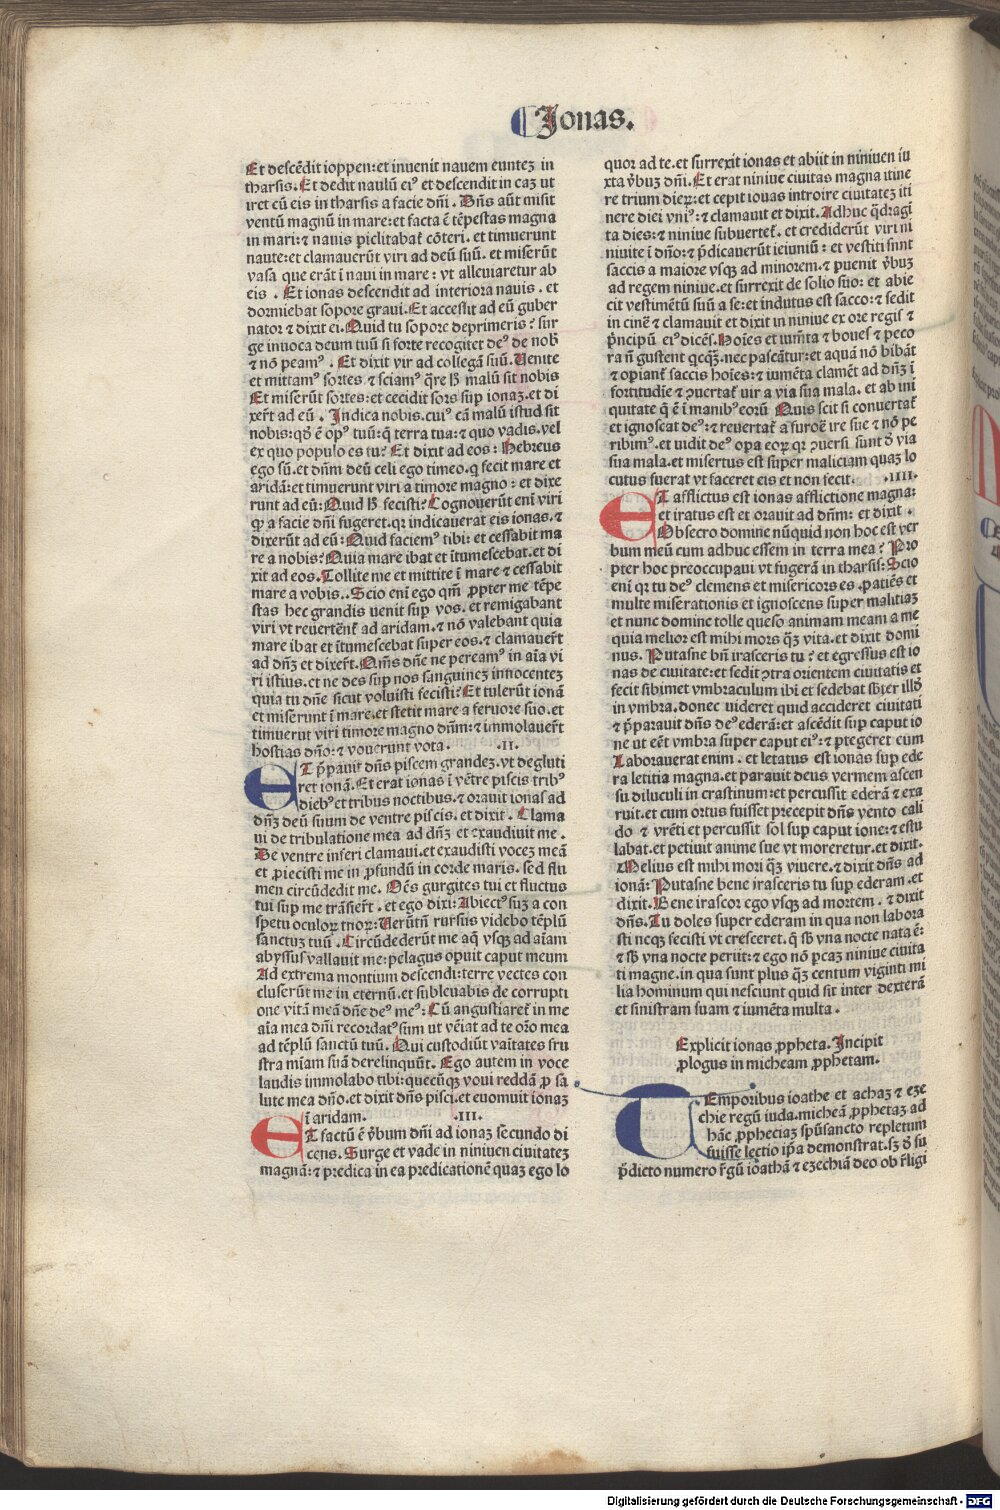 Ionas.
Et descēdit ioppen:et inuenit nauem euntez in
tharsis.Et dedit naulū eiꝰ et descendit in eaz ut
iret cū eis in tharsis a facie dn̄i . Dn̄s aūt misit
ventū magnū in mare:et facta ē tēpestas magna
in mari:⁊ nauis piclitabat᷑ cōteri. et timuerunt
naute:et clamauerūt viri ad deū suū. et miserūt
vasa que erāt ī naui in mare : vt alleuiaretur ab
eis . Et ionas descendit ad interiora nauis . et
dormiebat sopore graui.Et accessit ad eū guber
nator ⁊ dixit ei.Quid tu sopore deprimeris? sur
ge inuoca deum tuū si forte recogitet deꝰ de nob̄
⁊ nō peamꝰ . Et dixit vir ad collegā suū.Uenite
et mittamꝰ sortes ⁊ sciamꝰ q̄re h̄ malū sit nobis
Et miserūt sortes:et cecidit sors sup ionaz.et di
xer̄t ad eū . Indica nobis.cuiꝰ cā malū istud sit
nobis:qd̄ ē opꝰ tuū:q̄ terra tua:⁊ quo vadis.vel
ex quo populo es tu? Et dixit ad eos : Hebreus
ego sū.et dn̄m deū celi ego timeo.q fecit mare et
aridā:et timuerunt viri a timore magno : et dixe
runt ad eū:Quid h̄ fecisti?Cognouerūt enī viri
qꝙ a facie dn̄i fugeret.qr indicauerat eis ionas.⁊
dixerūt ad eū:Quid faciemꝰ tibi: et cessabit ma
re a nobis?Quia mare ibat et ītumescebat.et di
xit ad eos.Tollite me et mittite ī mare ⁊ cessabit
mare a vobis. Scio enī ego qm̄ ꝓpter me tēpe
stas hec grandis uenit sup vos. et remigabant
viri vt reuertēnt᷑ ad aridam.⁊ nō valebant quia
mare ibat et ītumescebat super eos.⁊ clamauer̄t
ad dn̄z et dixer̄t.Qm̄s dn̄e ne pereamꝰ in aīa vi
ri istius.et ne des sup nos sanguinez innocentez
quia tu dn̄e sicut voluisti fecisti?Et tulerūt ionā
et miserunt ī mare.et stetit mare a feruore suo.et
timuerut viri timore magno dn̄m:⁊ immolauer̄t
hostias dn̄o:⁊ vouerunt vota. .II.
ET p̄pauit dn̄s piscem grandez.vt degluti
ret ionā.Et erat ionas ī vētre piscis tribꝰ
diebꝰ et tribus noctibus.⁊ orauit ionas ad
dn̄z deū suum de ventre piscis.et dixit . Clama
ui de tribulatione mea ad dn̄z et exaudiuit me .
De ventre inferi clamaui.et exaudisti vocez meā
et ꝓiecisti me in ꝓfundū in corde maris. sed flu
men circūdedit me. Oēs gurgites tui et fluctus
tui sup me trāsier̄t . et ego dixi:Abiectꝰ suz a con
spetu oculoꝝ tuoꝝ:Uerūtn̄ rursus videbo tēplū
sanctuz tuū . Circūdederūt me aq̄ vsqꝫ ad aīam
abyssus vallauit me:pelagus opuit caput meum
Ad extrema montium descendi:terre vectes con
cluserūt me in eternū.et subleuabis de corrupti
one vitā meā dn̄e deꝰ meꝰ: Cū angustiaret᷑ in me
aīa mea dn̄i recordatꝰ sum ut vēiat ad te or̄o mea
ad tēplū sanctū tuū. Qui custodiūt vaītates fru
stra mīam suā derelinquūt. Ego autem in voce
laudis immolabo tibi:quecūqꝫ voui reddā ꝓ sa
lute mea dn̄o.et dixit dn̄s pisci.et euomuit ionaz
ī aridam. .III.
ET factū ē v̄bum dn̄i ad ionaz secundo di
cens. Surge et vade in niniuen ciuitatez
magnā:⁊ predica in ea predicationē quaz ego lo
quor ad te.et surrexit ionas et abiit in niniuen iu
xta v̄buz dn̄i.Et erat niniue ciuitas magna itine
re trium dieꝝ:et cepit iouas introire ciuitatez iti
nere diei vniꝰ:⁊ clamauit et dixit. Adhuc q̄dragī
ta dies:⁊ niniue subuertet᷑. et crediderūt viri ni
niuite ī dn̄o:⁊ p̄dicauerūt ieiuniū : et vestiti sunt
saccis a maiore vsqꝫ ad minorem.⁊ puenit v̄buz
ad regem niniue.et surrexit de solio suo: et abie
cit vestimētū suū a se:et indutus est sacco:⁊ sedit
in cinē ⁊ clamauit et dixit in niniue ex ore regis ⁊
p̄ncipū eiꝰ dicēs.Hoīes et ium̄ta ⁊ boues ⁊ peco
ra n̄ gustent qcqꝫ.nec pascātur:et aquā nō bibāt
⁊ opiant᷑ saccis hoīes:⁊ iumēta clamēt ad dn̄z ī
fortitudīe ⁊ ꝯuertat᷑ vir a via sua mala. et ab ini
quitate q̄ ē ī manibꝰ eorū Quis scit si conuertat᷑
et ignoscat deꝰ:⁊ reuertat᷑ a furoē ire sue ⁊ nō pe
ribimꝰ.et vidit deꝰ opa eoꝝ qr ꝯuersi sunt d̄ via
sua mala.et misertus est super maliciam quaz lo
cutus fuerat vt faceret eis et non fecit. .IIII.
ET afflictus est ionas afflictione magna:
et iratus est et orauit ad dn̄m: et dixit .
Obsecro domine nūquid non hoc est ver
bum meū cum adhuc essem in terra mea ? Pro
pter hoc preoccupaui vt fugerā in tharsis:Scio
enī qr tu deꝰ clemens et misericors es .patiēs et
multe miserationis et ignoscens super malitiaz
et nunc domine tolle queso animam meam a me
quia melior est mihi mors qꝫ vita.et dixit domi
nus. Putasne bn̄ irasceris tu ? et egressus est io
nas de ciuitate:et sedit ꝯtra orientem ciuitatis et
fecit sibimet vmbraculum ibi et sedebat sb̄ter illd̄
in vmbra.donec videret quid accideret ciuitati
⁊ p̄parauit dn̄s deꝰ ederā: et ascēdit sup caput io
ne ut eēt vmbra super caput eiꝰ:⁊ ptegeret eum
Laborauerat enim . et letatus est ionas sup ede
ra letitia magna.et parauit deus vermem ascen
su diluculi in crastinum:et percussit ederā ⁊ exa
ruit.et cum ortus fuisset precepit dn̄s vento cali
do ⁊ vrēti et percussit sol sup caput ione:⁊ estu
labat.et petiuit anime sue vt moreretur.et dixit.
Melius est mihi mori qꝫ viuere.⁊ dixit dn̄s ad
ionā: Putasne bene irasceris tu sup ederam .et
dixit. Bene irascor ego vsqꝫ ad mortem . ⁊ dixit
dn̄s. Tu doles super ederam in qua non labora
sti neqꝫ fecisti vt cresceret.q̄ sb̄ vna nocte nata ē:
⁊ sb̄ vna nocte periit:⁊ ego nō pcaz niniue ciuita
ti magne.in qua sunt plus qꝫ centum viginti mi
lia hominum qui nesciunt quid sit inter dexterā
et sinistram suam ⁊ iumēta multa .
Explicit ionas ꝓpheta. Incipit
ꝓlogus in micheam ꝓphetam.
TEmporibus ioathe et achaz ⁊ eze
chie regū iuda.micheā ꝓphetaz ad
hāc ꝓpheciaz spūsancto repletum
fuisse lectio ip̄a demonstrat.sz d̄ su
p̄dicto numero r̄gū ioathā ⁊ ezechiā deo ob r̄ligi
Digitalisierung gefördert durch die Deutsche Forschungsgemeinschaft - DFG